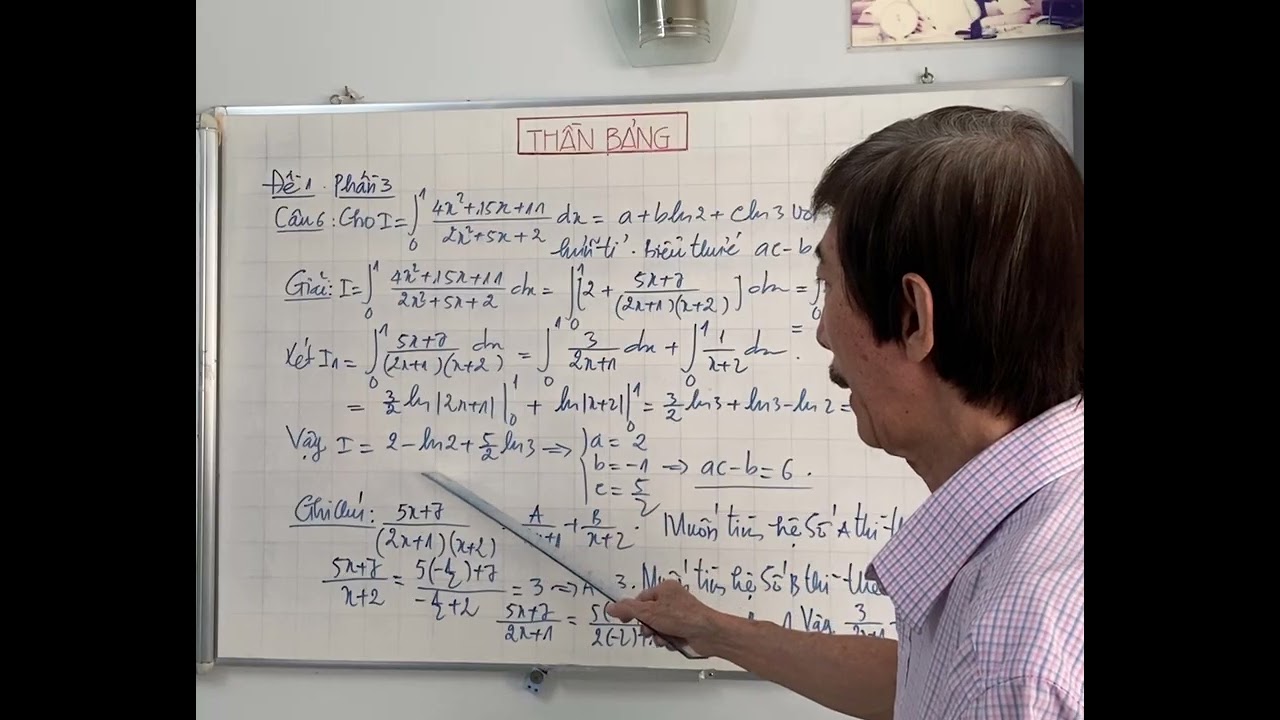 THẦN BẢNG
Đề 1. Phần 3
Câu 6: Cho I = ∫₀¹ (4x²+15x+11)/(2x²+5x+2) dx = a + b ln2 + c ln3 với
hữu tỉ. Biểu thức ac - b
Giải: I = ∫₀¹ (4x²+15x+11)/(2x²+5x+2) dx = ∫₀¹ [2 + (5x+7)/((2x+1)(x+2))] dx = ∫₀
Xét I₁ = ∫₀¹ (5x+7)/((2x+1)(x+2)) dx = ∫₀¹ 3/(2x+1) dx + ∫₀¹ 1/(x+2) dx.
=
= 3/2 ln|2x+1| |₀¹ + ln|x+2| |₀¹ = 3/2 ln3 + ln3 - ln2 =
Vậy I = 2 - ln2 + 5/2 ln3 ⇒ { a = 2
b = -1 ⇒ ac - b = 6.
c = 5/2
Ghi chú: (5x+7)/((2x+1)(x+2)) A/ + B/(x+2). Muốn tìm hệ số A thì
(5x+7)/(x+2) = (5(-½)+7)/(-½+2) = 3 ⇒ A 3. Muốn tìm hệ số B thì thế
(5x+7)/(2x+1) = 5( 2(-2)+ 1 Vậy 3/